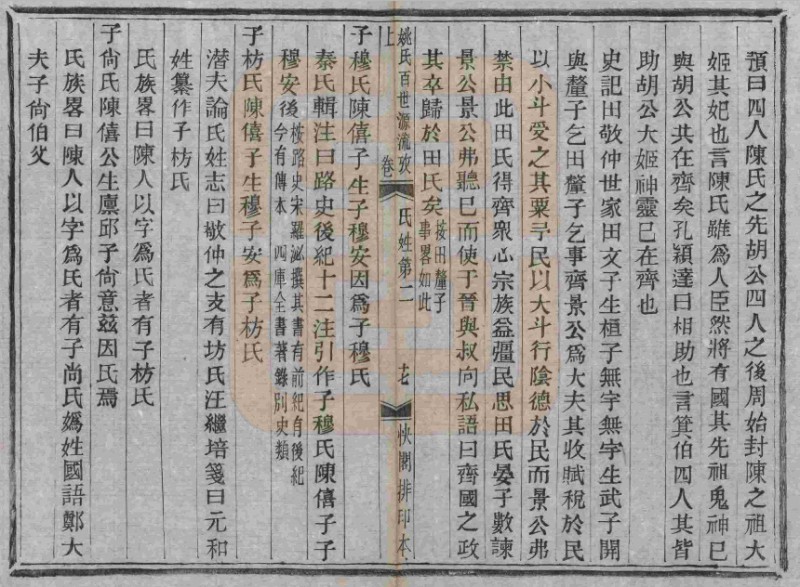 預曰四人陳氏之先胡公四人之後周始封陳之祖大
姬其妃也言陳氏雖爲人臣然將有國其先祖鬼神巳
與胡公共在齊矣孔穎達曰相助也言箕伯四人其皆
助胡公大姬神靈巳在齊也
史記田敬仲世家田文子生桓子無宇無宇生武子開
與釐子乞田釐子乞事齊景公爲大夫其收賦稅於民
以小斗受之其粟予民以大斗行陰德於民而景公弗
禁由此田氏得齊眾心宗族益彊民思田氏晏子數諫
景公景公弗聽巳而使于晉與叔向私語曰齊國之政
其卒歸於田氏矣按田釐子事畧如此
姚氏百世源流攷 卷上 氏姓第二 十七 快閣排印本
子穆氏陳僖子生子穆安因爲子穆氏
秦氏輯注曰路史後紀十二注引作子穆氏陳僖子子
穆安後按路史宋羅泌撰其書有前紀有後紀今有傳本四庫全書著錄別史類
子枋氏陳僖子生穆子安爲子枋氏
潛夫論氏姓志曰敬仲之支有坊氏汪繼培箋曰元和
姓纂作子枋氏
氏族畧曰陳人以字爲氏者有子枋氏
子尙氏陳僖公生廪邱子尙意茲因氏焉
氏族畧曰陳人以字爲氏者有子尙氏嬀姓國語鄭大
夫子尙伯父